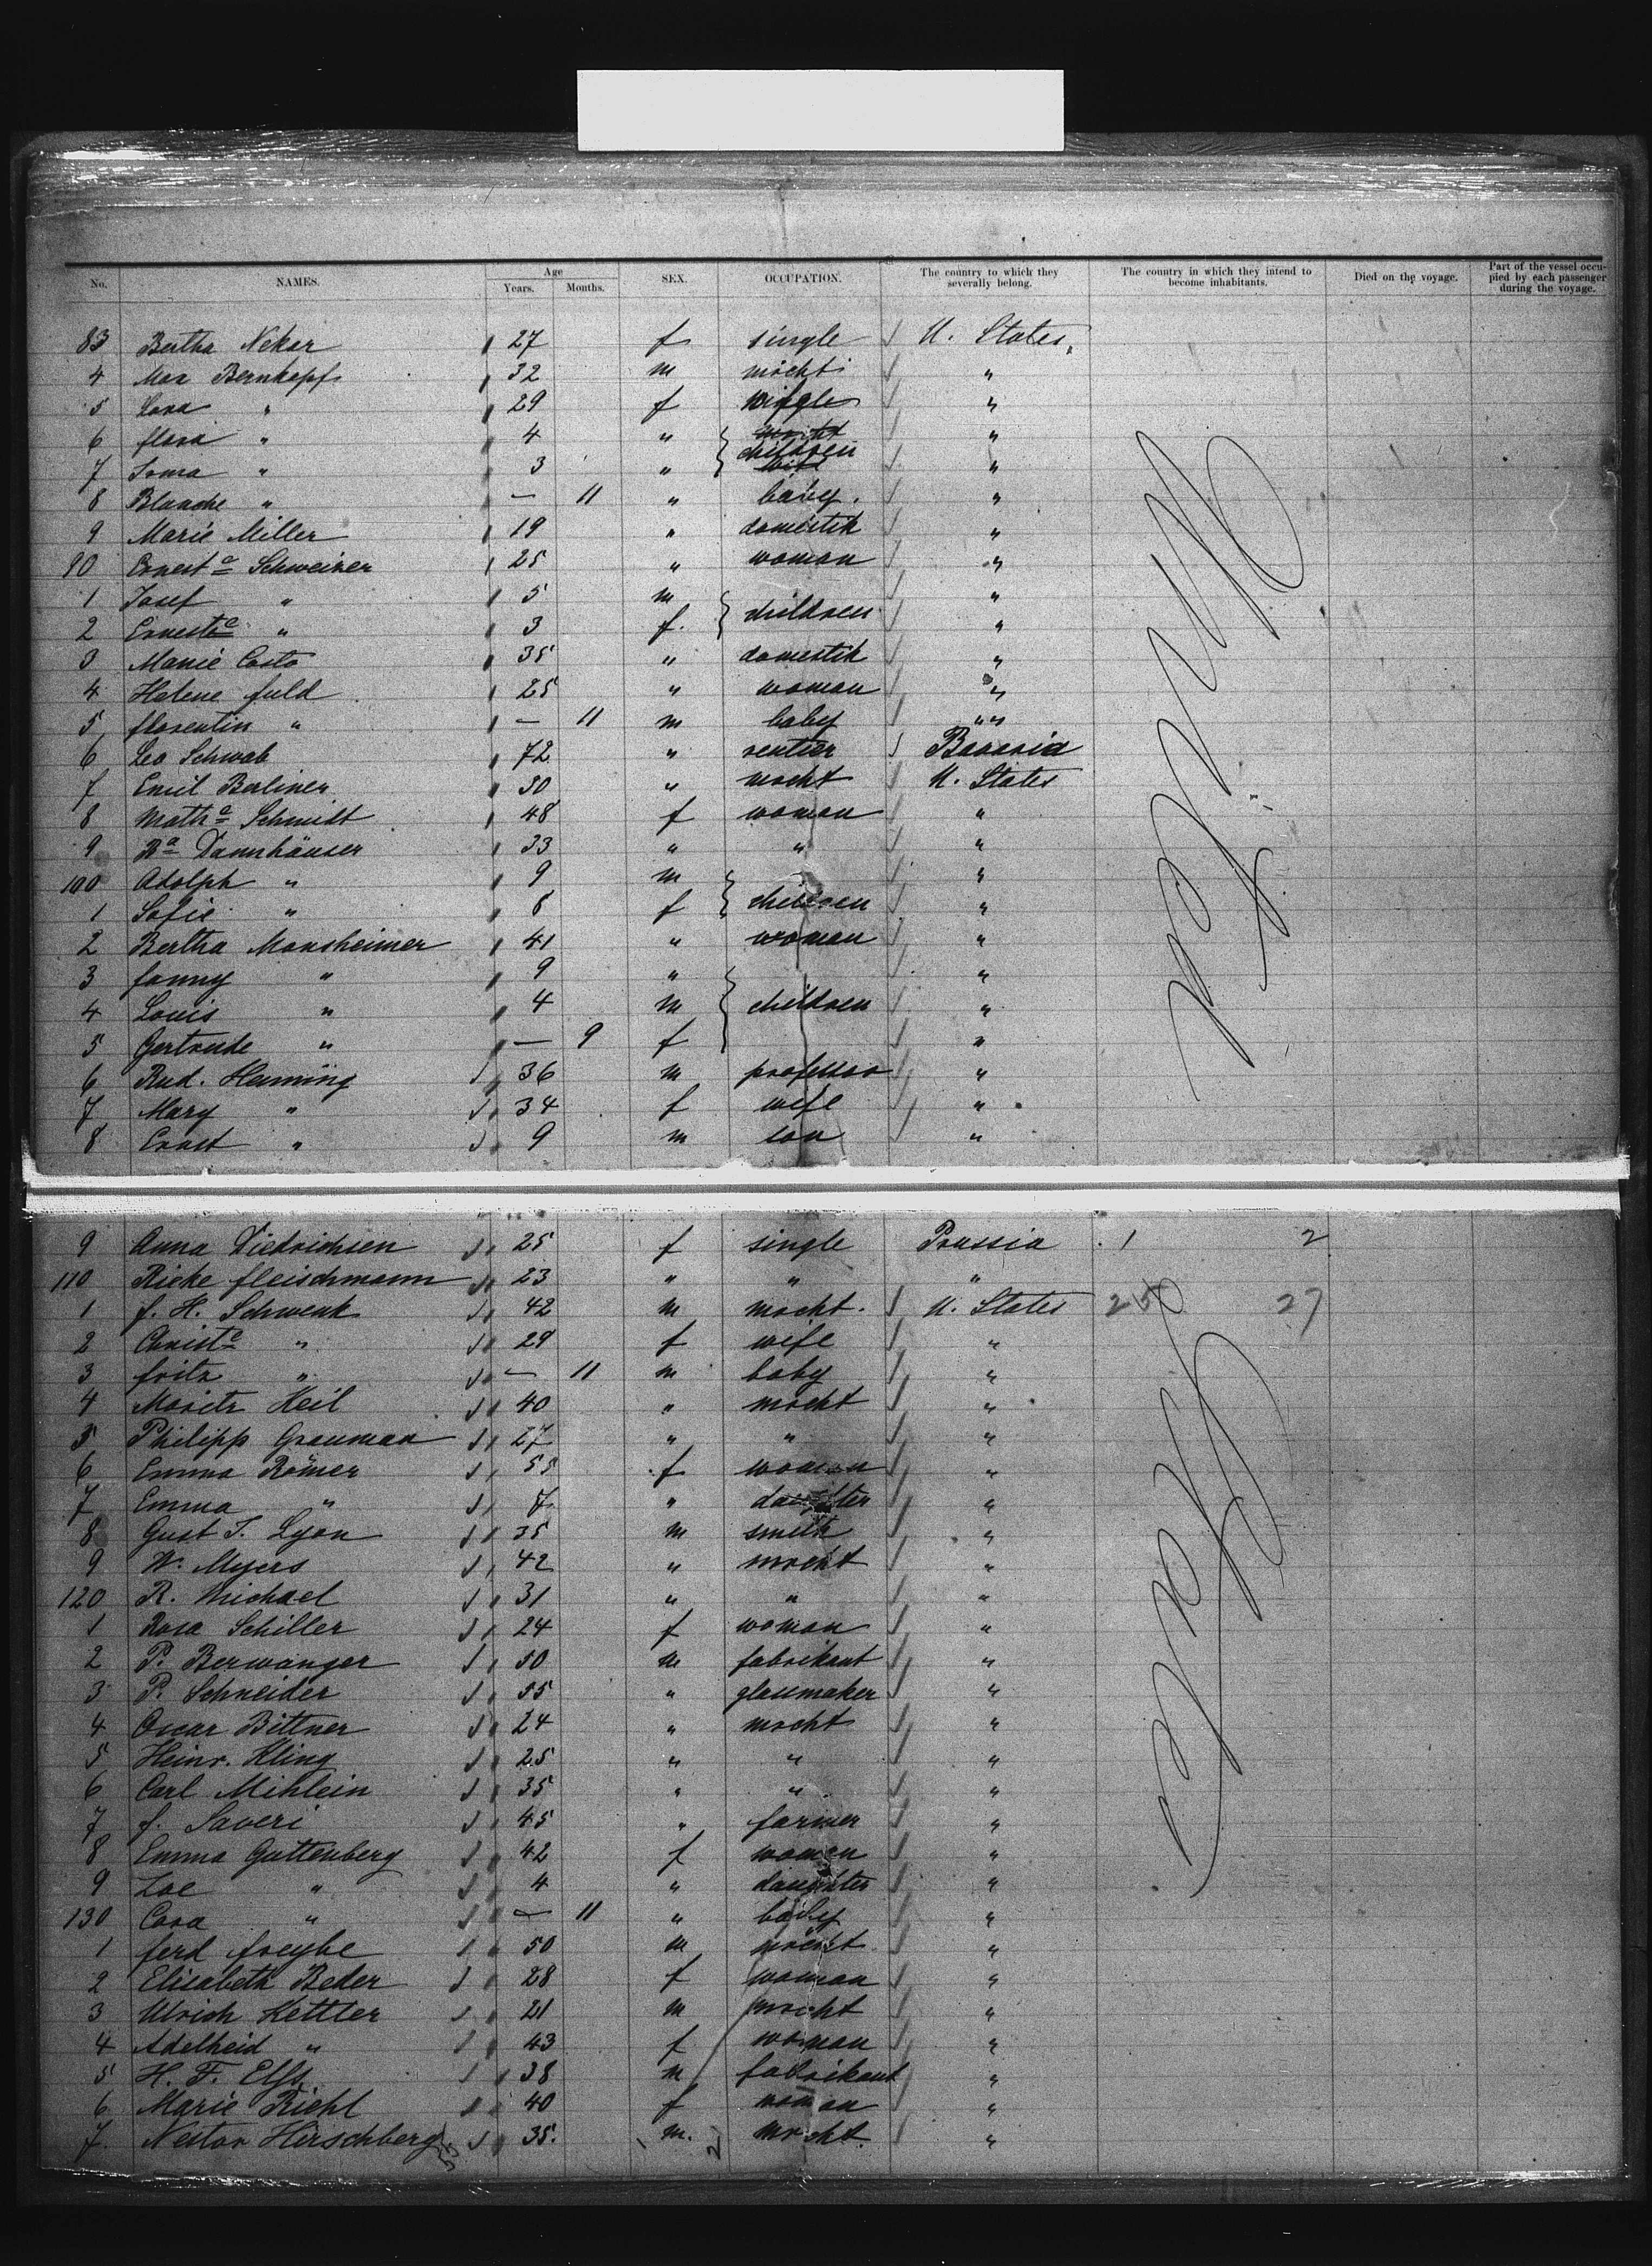 No. NAMES. Age Years. Months. SEX. OCCUPATION. The country to which they severally belong. The country in which they intend to become inhabitants. Died on the voyage. Part of the vessel occupied by each passenger during the voyage.
83 Bertha Nekar 27 f single U. States
4 Max Bernkopf 32 m mrcht "
5 29 f "
6 flora " 4 " children "
7 Irma " 3 " "
8 Blanche " — 11 " baby. "
9 Marie Miller 19 " domestik "
90 Ernest e Schweizer 25 " woman "
1 Josef " 5 m children "
2 Erneste " 3 f. "
3 Marie Costo 35 " domestik "
4 Helene fuld 25 " woman "
5 florentin " — 11 m baby " "
6 Leo Schwab 72 " rentier Bavaria
7 Emil Berliner 30 " mrcht U. States
8 Math e Schmidt 48 f woman "
9 Ra Dannhäuser 33 " " "
100 Adolph " 9 m children "
1 Sofie " 8 f "
2 Bertha Monsheimer 41 " woman "
3 fanny " 9 " "
4 Louis " 4 m children "
5 Gertrude " — 9 f "
6 Rud. Henning 36 m professor "
7 Mary " 34 f wife "
8 Ernst " 9 m son "
9 Anna Diedrichsen 25 f single Prussia 1 2
110 Rieke fleischmann 23 " " "
1 f. H. Schwenk 42 m mrcht. U. States 250 27
2 Christe " 29 f wife "
3 fritz " — 11 m baby "
4 Moritz Heil 40 " mrcht "
5 Philipp Grauman 27 " " "
6 Emma Römer 55 f woman "
7 Emma " 7 " daughter "
8 Gust J. Lyon 35 m smith "
9 W. Myers 42 " mrcht "
120 R. Michael 31 " " "
1 Rosa Schiller 24 f woman "
2 P. Berwanger 50 m fabrikant "
3 P. Schneider 55 " glassmaker "
4 Oscar Bittner 24 " mrcht "
5 Heinr. Kling 25 " " "
6 Carl Mihlein 35 " " "
7 f. Saveri 45 " farmer "
8 Emma Guttenberg 42 f woman "
9 Zoe " 4 " daughter "
130 Cora " — 11 " baby "
1 ferd freybe 50 m mrcht "
2 Elisabeth Beder 28 f woman "
3 Ulrich Kettler 21 m mrcht "
4 Adelheid " 43 f woman "
5 H. F. Elfs 38 m fabrikant "
6 Marie Riehl 40 f woman "
7. Nestor Hirschberg 35. m. mrcht. "